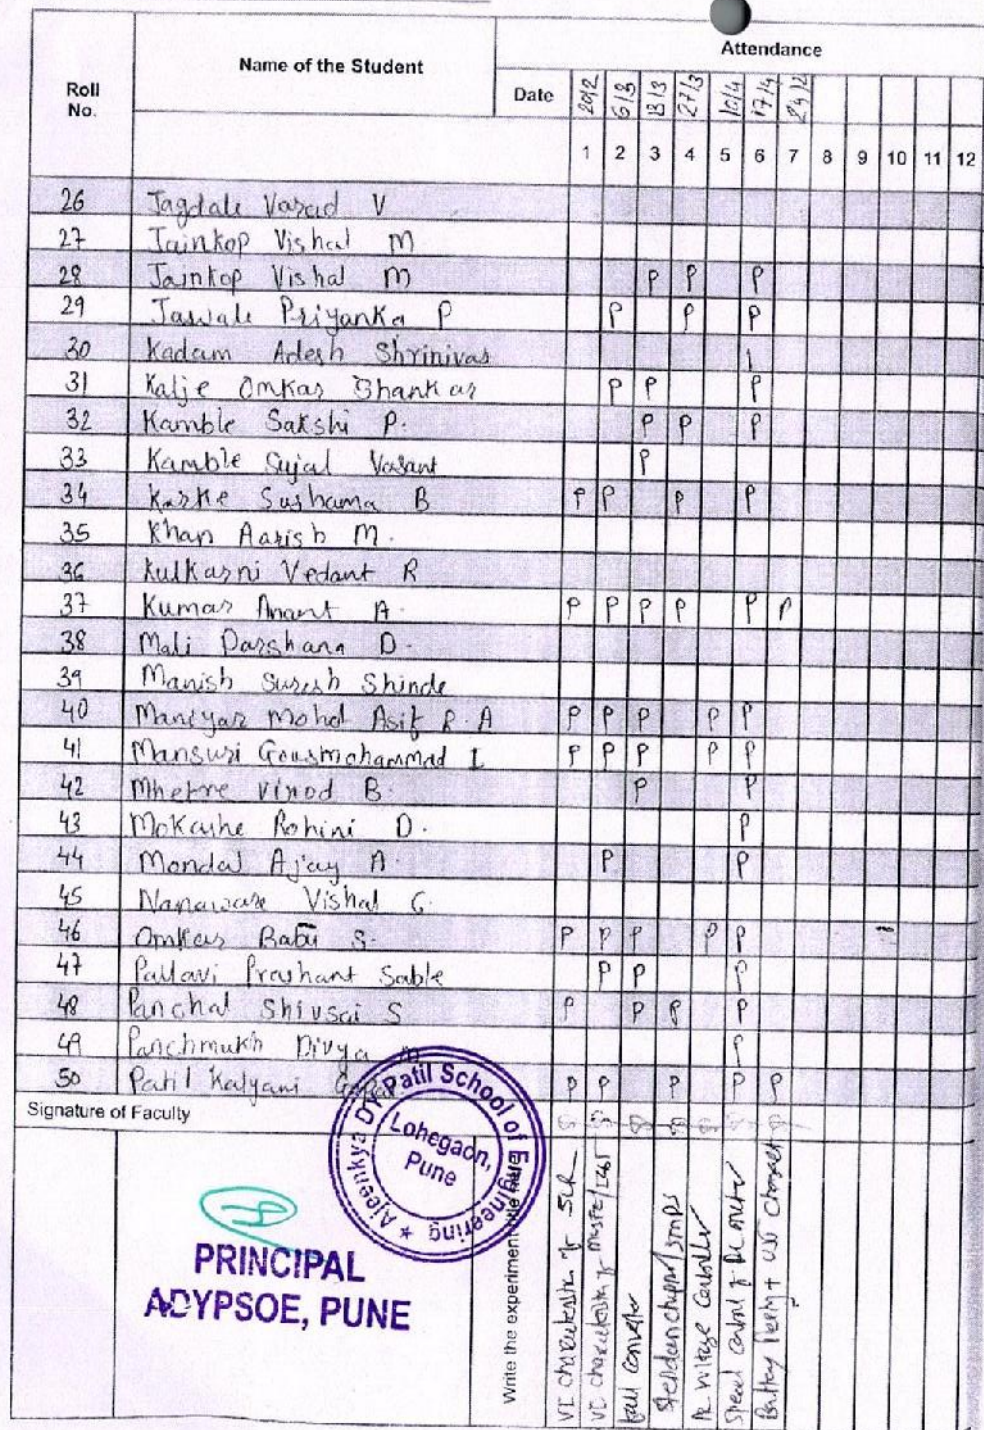 Attendance
Roll No.
Name of the Student
Date 20/2 6/3 13/3 27/3 10/4 17/4 24/2
1 2 3 4 5 6 7 8 9 10 11 12
26 Jagdale Varad V
27 Jainkop Vishal M
28 Jainkop Vishal M P P P
29 Jawale Priyanka P P P P
30 Kadam Adesh Shrinivas
31 Kalje Omkar Shankar P P P
32 Kamble Sakshi P. P P P
33 Kamble Sujal Vasant P
34 Karke Sushama B P P P P
35 Khan Aarish M.
36 Kulkarni Vedant R
37 Kumar Anant A. P P P P P P
38 Mali Darshana D.
39 Manish Suresh Shinde
40 Maniyar Mohd Asif R. A P P P P P
41 Mansuri Gousmohammad I P P P P P
42 Mhetre Vinod B. P P
43 Mokashe Rohini D. P
44 Mondal Ajay A. P P
45 Nanaware Vishal G.
46 Omkar Babu S. P P P P P
47 Pallavi Prashant Sable P P P
48 Panchal Shivsai S P P P P
49 Panchmukh Divya M P
50 Patil Kalyani P P P P P
Signature of Faculty
Ajeenkya DY Patil School of Engineering
Lohegaon,
Pune
PRINCIPAL
ADYPSOE, PUNE
Write the experiment title here
VI characteristic of SCR
VI characteristic of MOSFET/IGBT
full converter
Stepdown chopper/SMPS
Ac voltage Controller
Speed control of DC motor
Battery charger